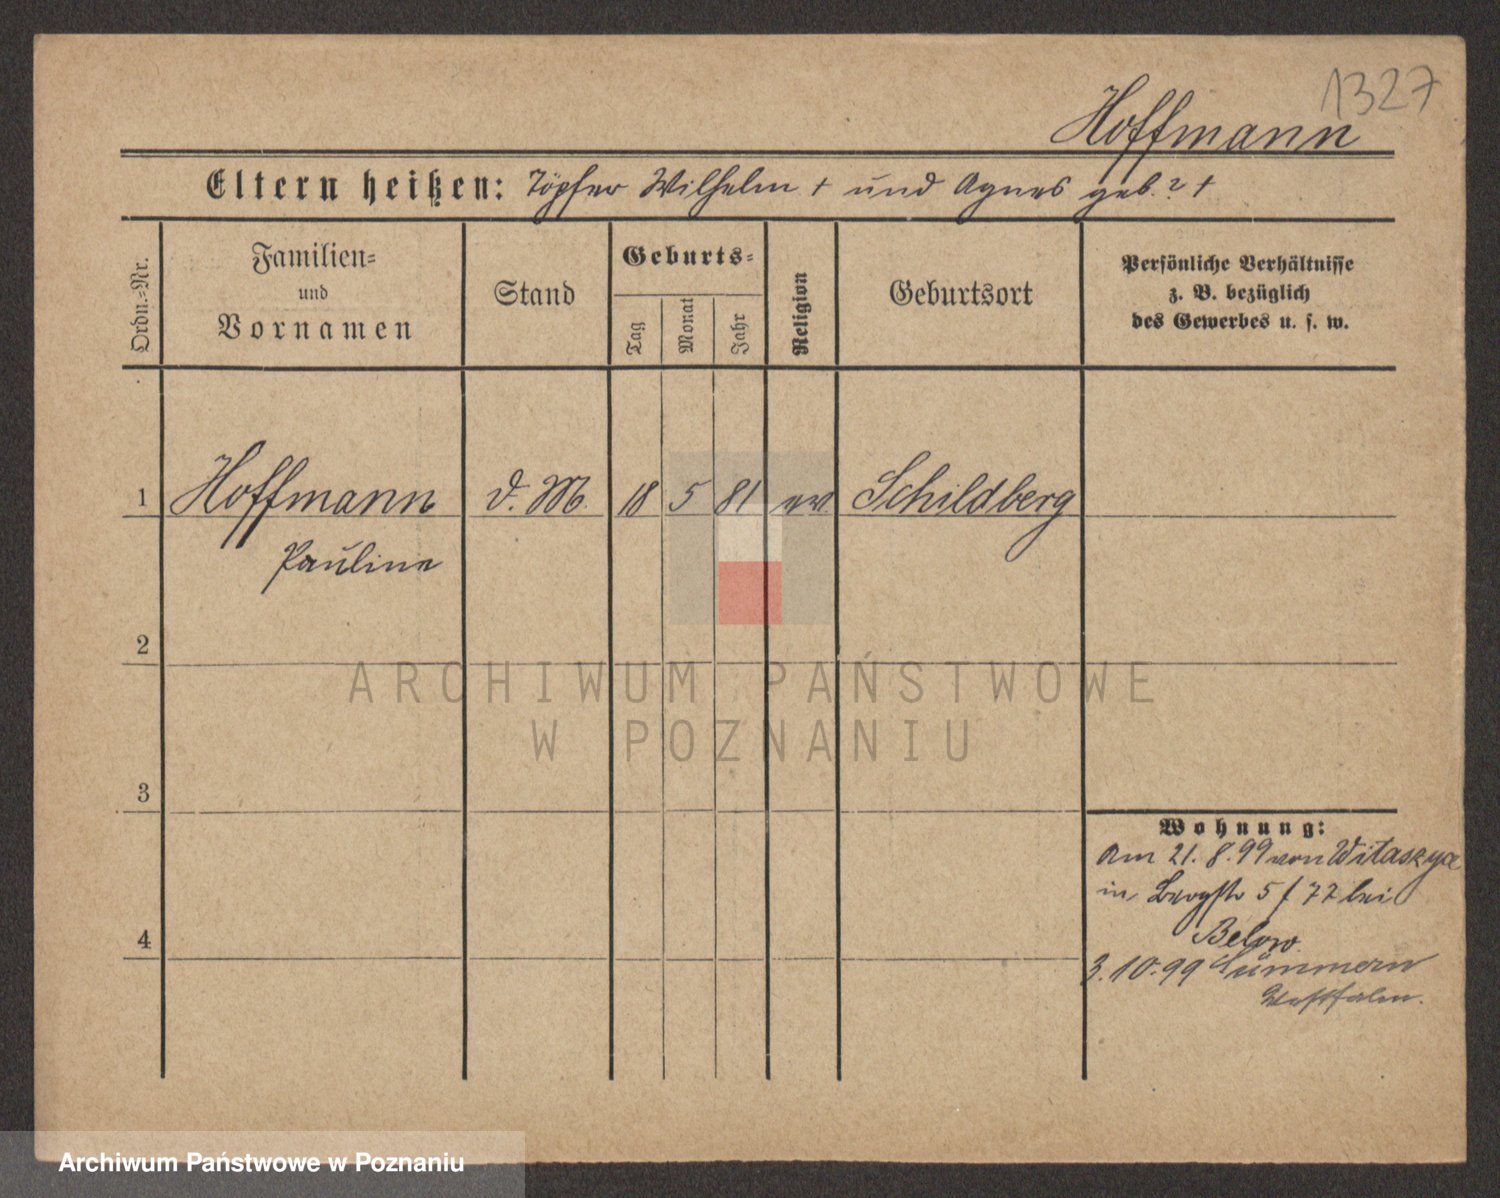 1327
Hoffmann
Eltern heißen: Töpfer Wilhelm + und Agnes geb. ? +
Ordn.=Nr.
Familien=
und
Vornamen
Stand
Geburts=
Tag
Monat
Jahr
Religion
Geburtsort
Persönliche Verhältnisse
z. B. bezüglich
des Gewerbes u. s. w.
1 Hoffmann d. M. 18 5 81 ev Schildberg
Pauline
2
ARCHIWUM PAŃSTWOWE
W POZNANIU
3
Wohnung:
Am 21. 8. 99 von Witaszyce
in Bergstr 5 / 77 bei
Below
4
3. 10. 99 Sümmern
Westfalen.
Archiwum Państwowe w Poznaniu